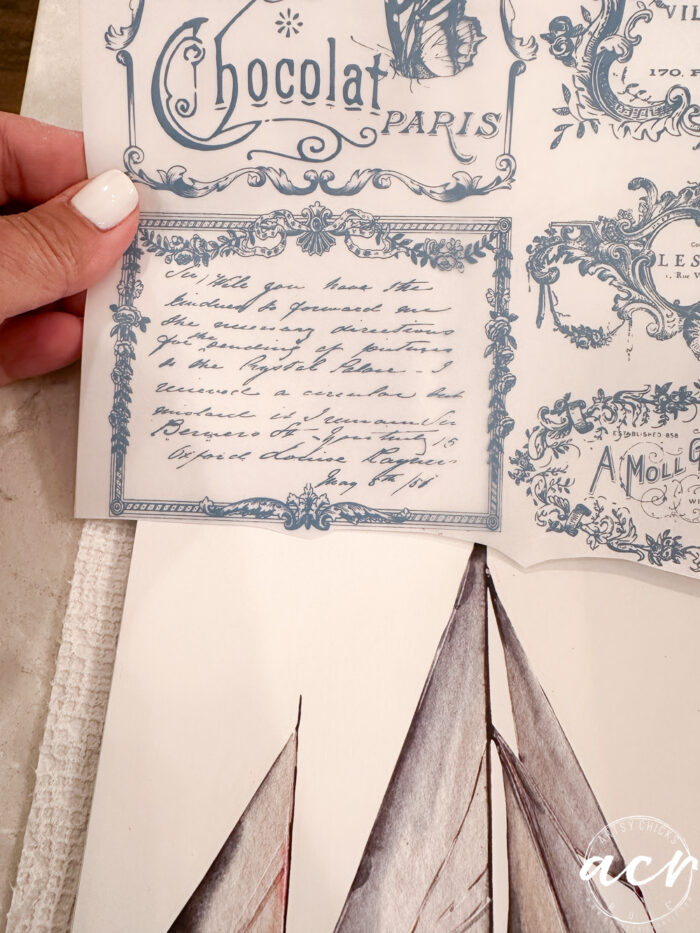 VIL
Chocolat
PARIS
170, F
Sir / Will you have the
kindness to forward me
the necessary directions
for the sending of pictures
to the Crystal Palace - I
received a circular but
mislaid it I remain Sir
Berners St
Oxford Louise Rayner
May 6th /56
Co
LES
1, Rue V
ESTABLISHED 858
A MOLL G
WI
ARTSY CHICKS
acr